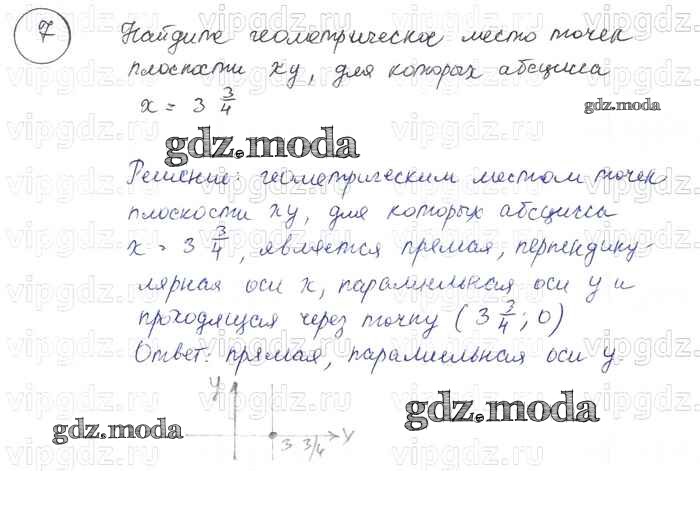 7 Найдите геометрическое место точек
плоскости xy, для которых абсцисса
x = 3 3/4
gdz.moda
gdz.moda
Решение: геометрическим местом точек
плоскости xy, для которых абсцисса
x = 3 3/4, является прямая, перпендику-
лярная оси x, параллельная оси y и
проходящая через точку (3 3/4; 0)
Ответ: прямая, параллельная оси y.
y
gdz.moda
gdz.moda
3 3/4 x
vipgdz.com